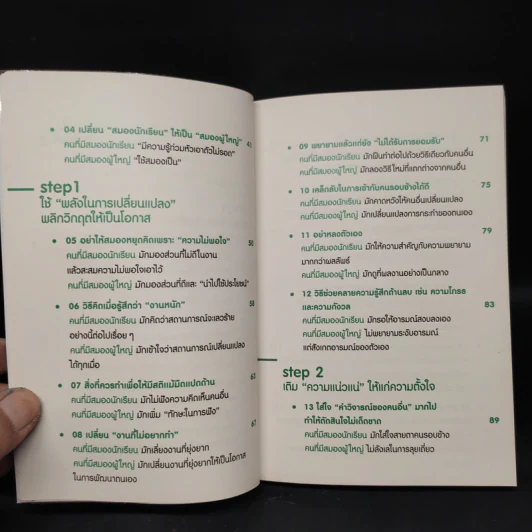 04 เปลี่ยน "สมองนักเรียน" ให้เป็น "สมองผู้ใหญ่" 41
คนที่มีสมองนักเรียน "มีความรู้ท่วมหัวเอาตัวไม่รอด"
คนที่มีสมองผู้ใหญ่ "ใช้สมองเป็น"
step1
ใช้ "พลังในการเปลี่ยนแปลง"
พลิกวิกฤตให้เป็นโอกาส
05 อย่าให้สมองหยุดคิดเพราะ "ความไม่พอใจ" 50
คนที่มีสมองนักเรียน มักมองส่วนที่ไม่ดีในงาน
แล้วสะสมความไม่พอใจเอาไว้
คนที่มีสมองผู้ใหญ่ มักมองส่วนที่ดีและ "นำไปใช้ประโยชน์"
06 วิธีคิดเมื่อรู้สึกว่า "งานหนัก" 58
คนที่มีสมองนักเรียน มักคิดว่าสถานการณ์จะเลวร้าย
อย่างนี้ต่อไปเรื่อย ๆ
คนที่มีสมองผู้ใหญ่ มักเข้าใจว่าสถานการณ์เปลี่ยนแปลง
ได้ทุกเมื่อ
07 สิ่งที่ควรทำเพื่อให้มีสติแม้มีแปดด้าน
คนที่มีสมองนักเรียน มักไม่ฟังความคิดเห็นคนอื่น
คนที่มีสมองผู้ใหญ่ มักเพิ่ม "ทักษะในการฟัง"
08 เปลี่ยน "งานที่ไม่อยากทำ" 67
คนที่มีสมองนักเรียน มักเลี่ยงงานที่ยุ่งยาก
คนที่มีสมองผู้ใหญ่ มักเปลี่ยนงานที่ยุ่งยากให้เป็นโอกาส
ในการพัฒนาตนเอง
09 พยายามแล้วแต่ยัง "ไม่ได้รับการยอมรับ" 71
คนที่มีสมองนักเรียน มักฝืนทำต่อไปด้วยวิธีเดียวกับคนอื่น
คนที่มีสมองผู้ใหญ่ มักลองวิธีใหม่ที่แตกต่างจากคนอื่น
10 เคล็ดลับในการเข้ากับคนรอบข้างได้ดี 75
คนที่มีสมองนักเรียน มักคาดหวังให้คนอื่นเปลี่ยนแปลง
คนที่มีสมองผู้ใหญ่ มักเปลี่ยนแปลงการกระทำของตนเอง
11 อย่าหลงตัวเอง 79
คนที่มีสมองนักเรียน มักให้ความสำคัญกับความพยายาม
มากกว่าผลลัพธ์
คนที่มีสมองผู้ใหญ่ มักดูที่ผลงานอย่างเป็นกลาง
12 วิธีช่วยคลายความรู้สึกด้านลบ เช่น ความโกรธ
และความกังวล 83
คนที่มีสมองนักเรียน มักรอให้อารมณ์สงบลงเอง
คนที่มีสมองผู้ใหญ่ ไม่พยายามระงับอารมณ์
แต่สังเกตอารมณ์ของตัวเอง
step 2
เติม "ความแน่วแน่" ให้แก่ความตั้งใจ
13 ใส่ใจ "คำวิจารณ์ของคนอื่น" มากไป
ทำให้ตัดสินใจไม่เด็ดขาด 89
คนที่มีสมองนักเรียน มักใส่ใจสายตาคนรอบข้าง
คนที่มีสมองผู้ใหญ่ ไม่ลังเลในการลุยเดี่ยว